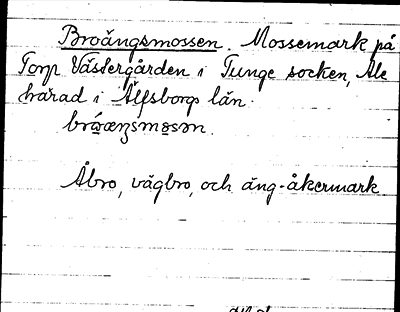 Broängsmossen. Mossemark på
Torp Västergården i Tunge socken, Ale
härad i Älfsborgs län.
Åbro, vägbro, och äng-åkermark